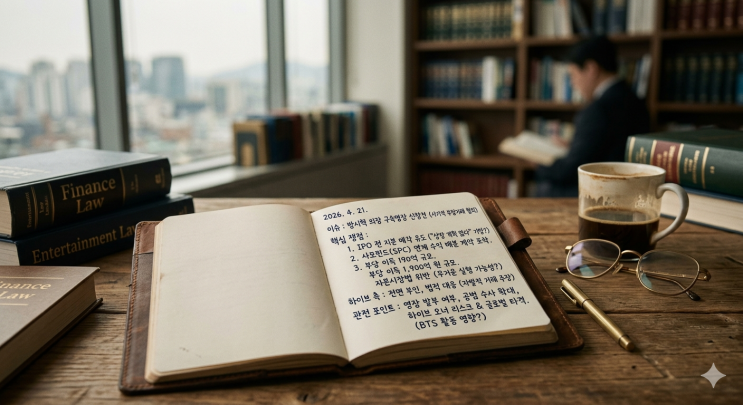 Finance
Law
Entertainment Law
Finance
Law
2026. 4. 21.
이슈 : 방시혁 의장 구속영장 신청건 (사기적 부정거래 혐의)
핵심 쟁점 :
1. IPO 전 지분 매각 유도 ("상장 계획 없어" 기망?)
2. 사모펀드(SPC) 연계 수익 배분 계약 포착.
3. 부당 이득 190억 규모.
부당 이득 1,900억 원 규모.
자본시장법 위반 (무거운 실형 가능성?)
하이브 측 : 전면 부인, 법적 대응 (자발적 거래 주장)
관전 포인트 : 영장 발부 여부, 공범 수사 확대,
하이브 오너 리스크 & 글로벌 타격.
(BTS 활동 영향?)